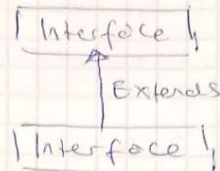 Interface
Extends
Interface